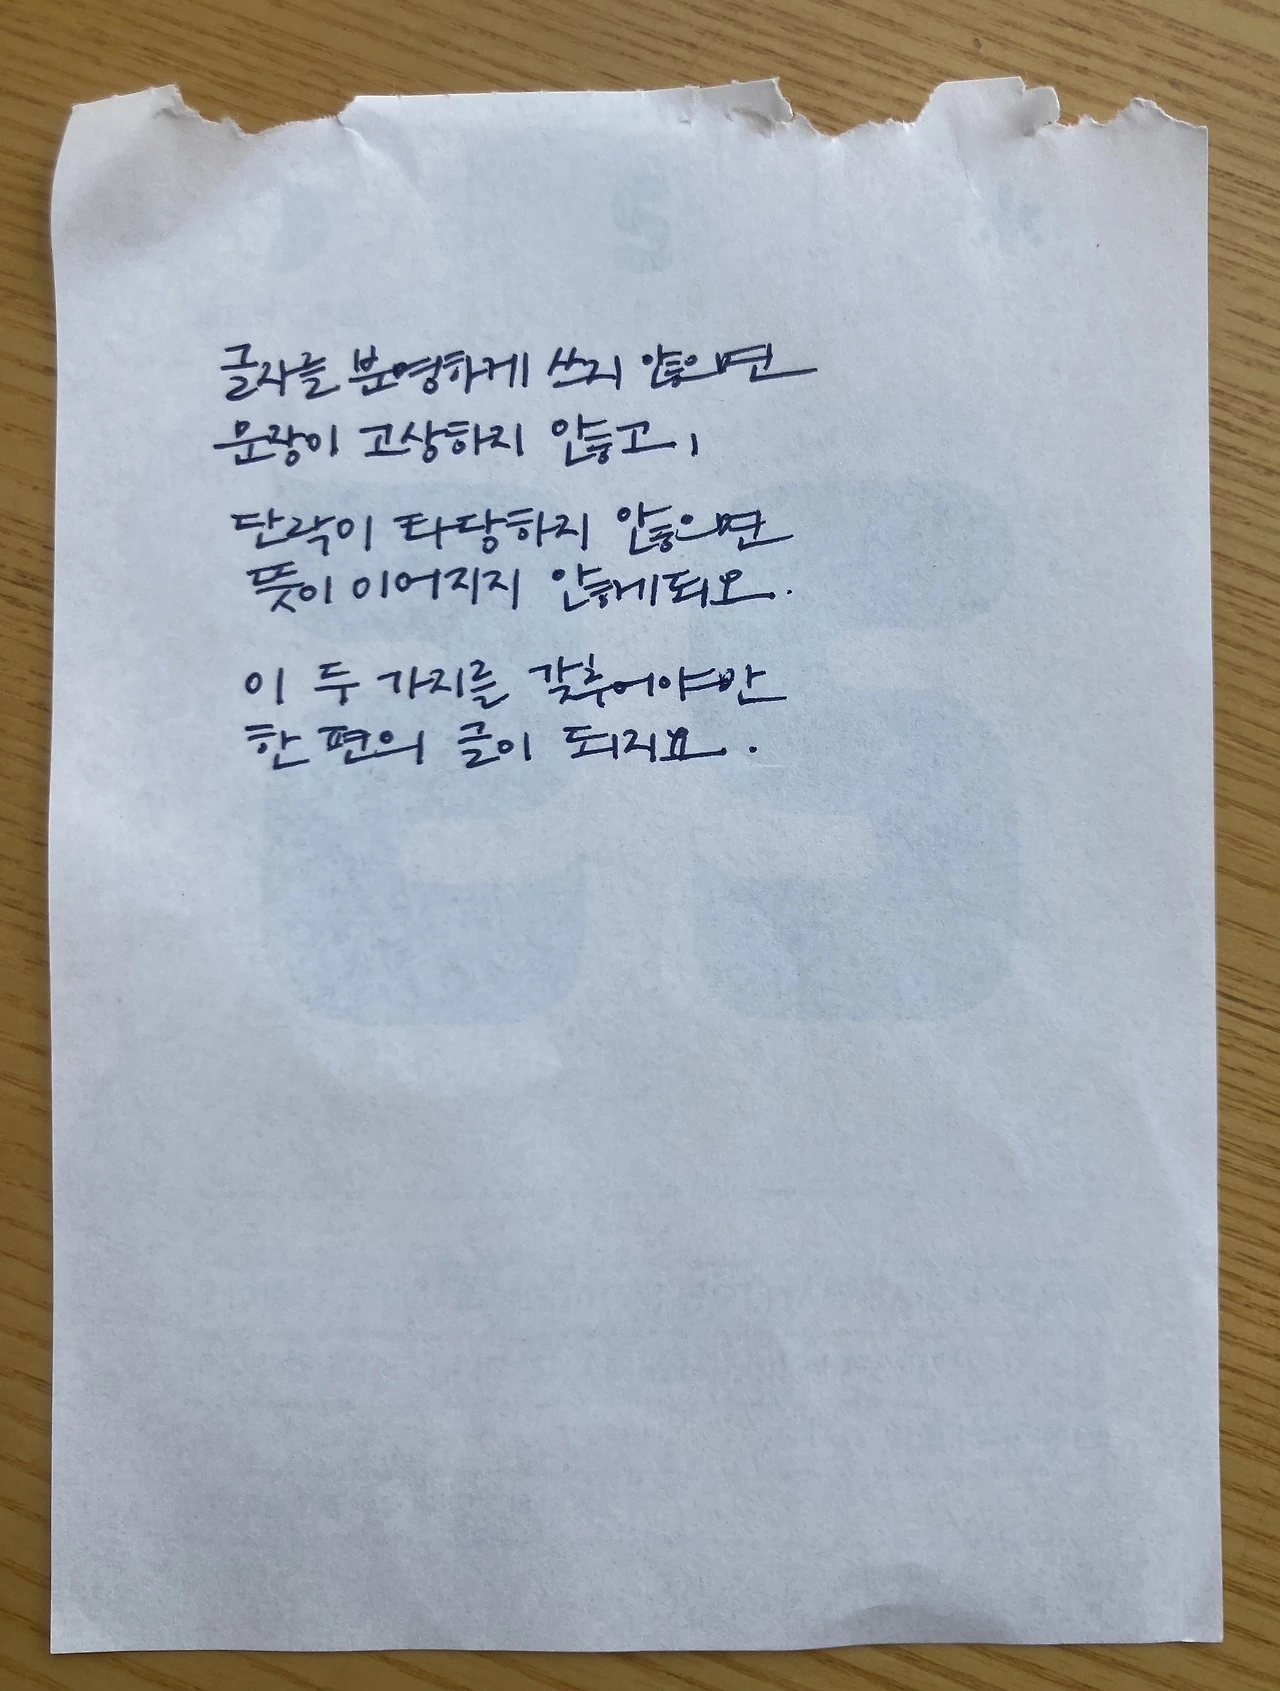 글자를 분명하게 쓰지 않으면
문장이 고상하지 않고,
단락이 타당하지 않으면
뜻이 이어지지 않게되오.
이 두 가지를 갖추어야만
한 편의 글이 되지요.